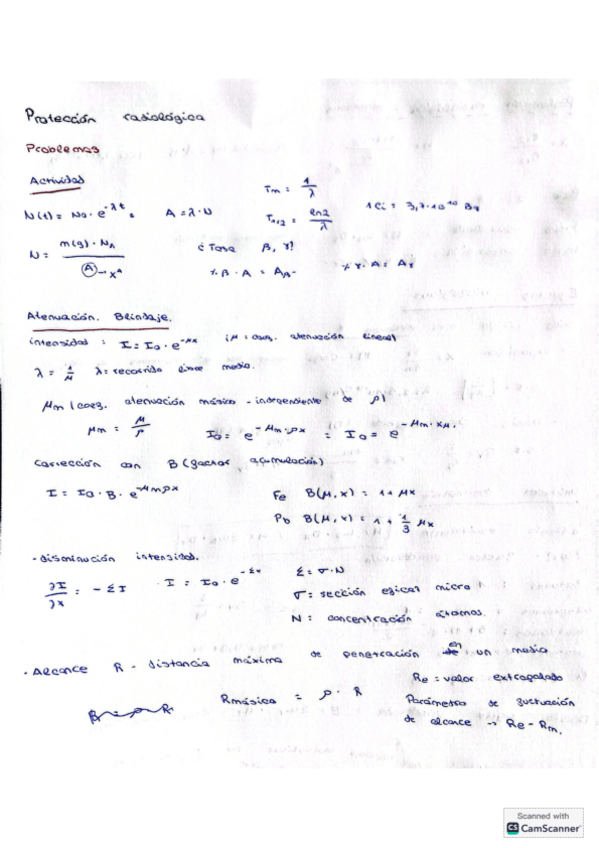 Protección radiológica
Problemas
Actividad
N(t) = N₀ · e^-λt. A = λ·N Tm = 1/λ T1/2 = ln2/λ 1Ci = 3,7·10^10 Bq
N = m(g)·NA / A → x^A ¿Tasa β, γ? %β·A = Aβ- %γ·A = Aγ
Atenuación. Blindaje.
intensidad: I = I₀·e^-μx (μ = coeg. atenuación lineal)
λ = 1/μ λ = recorrido libre medio.
μm (coeg. atenuación másico - independiente de ρ)
μm = μ/ρ I₀ = e^-μm·ρx = I₀ = e^-μm·xm.
Corrección con B (gactor acumulación)
I = I₀·B·e^-μmρx Fe B(μ,x) = 1 + μx
Pb B(μ,x) = 1 + 1/3 μx
- disminución intensidad.
∂I/∂x = -ΣI I = I₀·e^-Σx Σ = σ·N
σ = sección egicaz micro
N: concentración átomos.
· Alcance R - distancia máxima de penetración en un medio
Rmásico = ρ·R Re = valor extrapolado
Parámetro de guctuación
de alcance → Re - Rm.
Scanned with
CS CamScanner